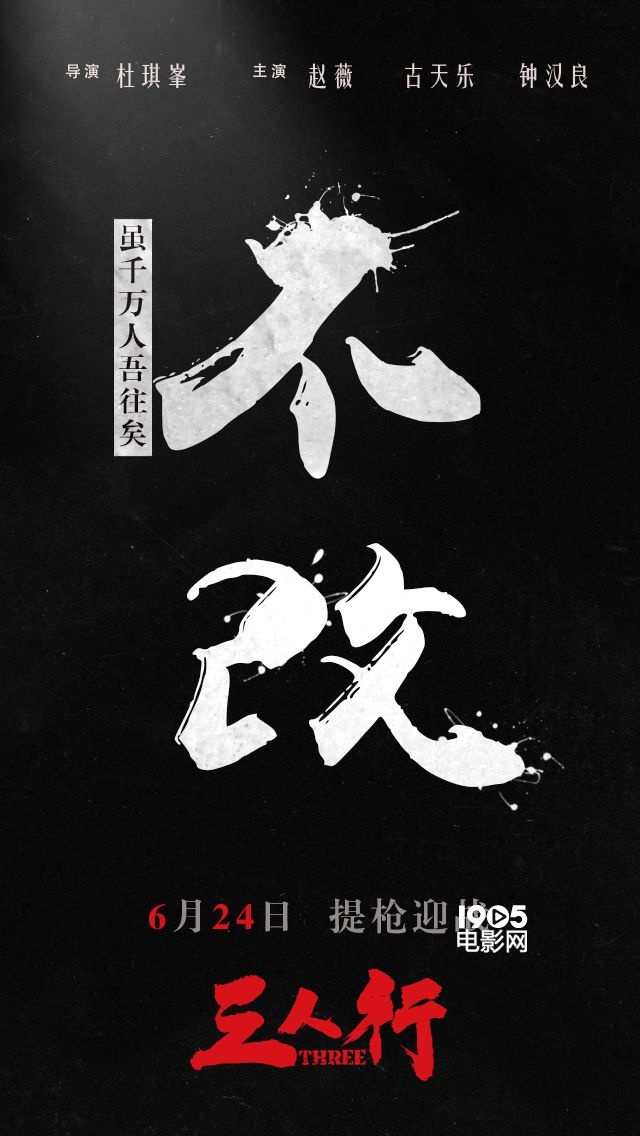 导演 杜琪峯 主演 赵薇 古天乐 钟汉良
虽千万人吾往矣
不
改
6月24日 提枪迎
1905
电影网
三人行
THREE